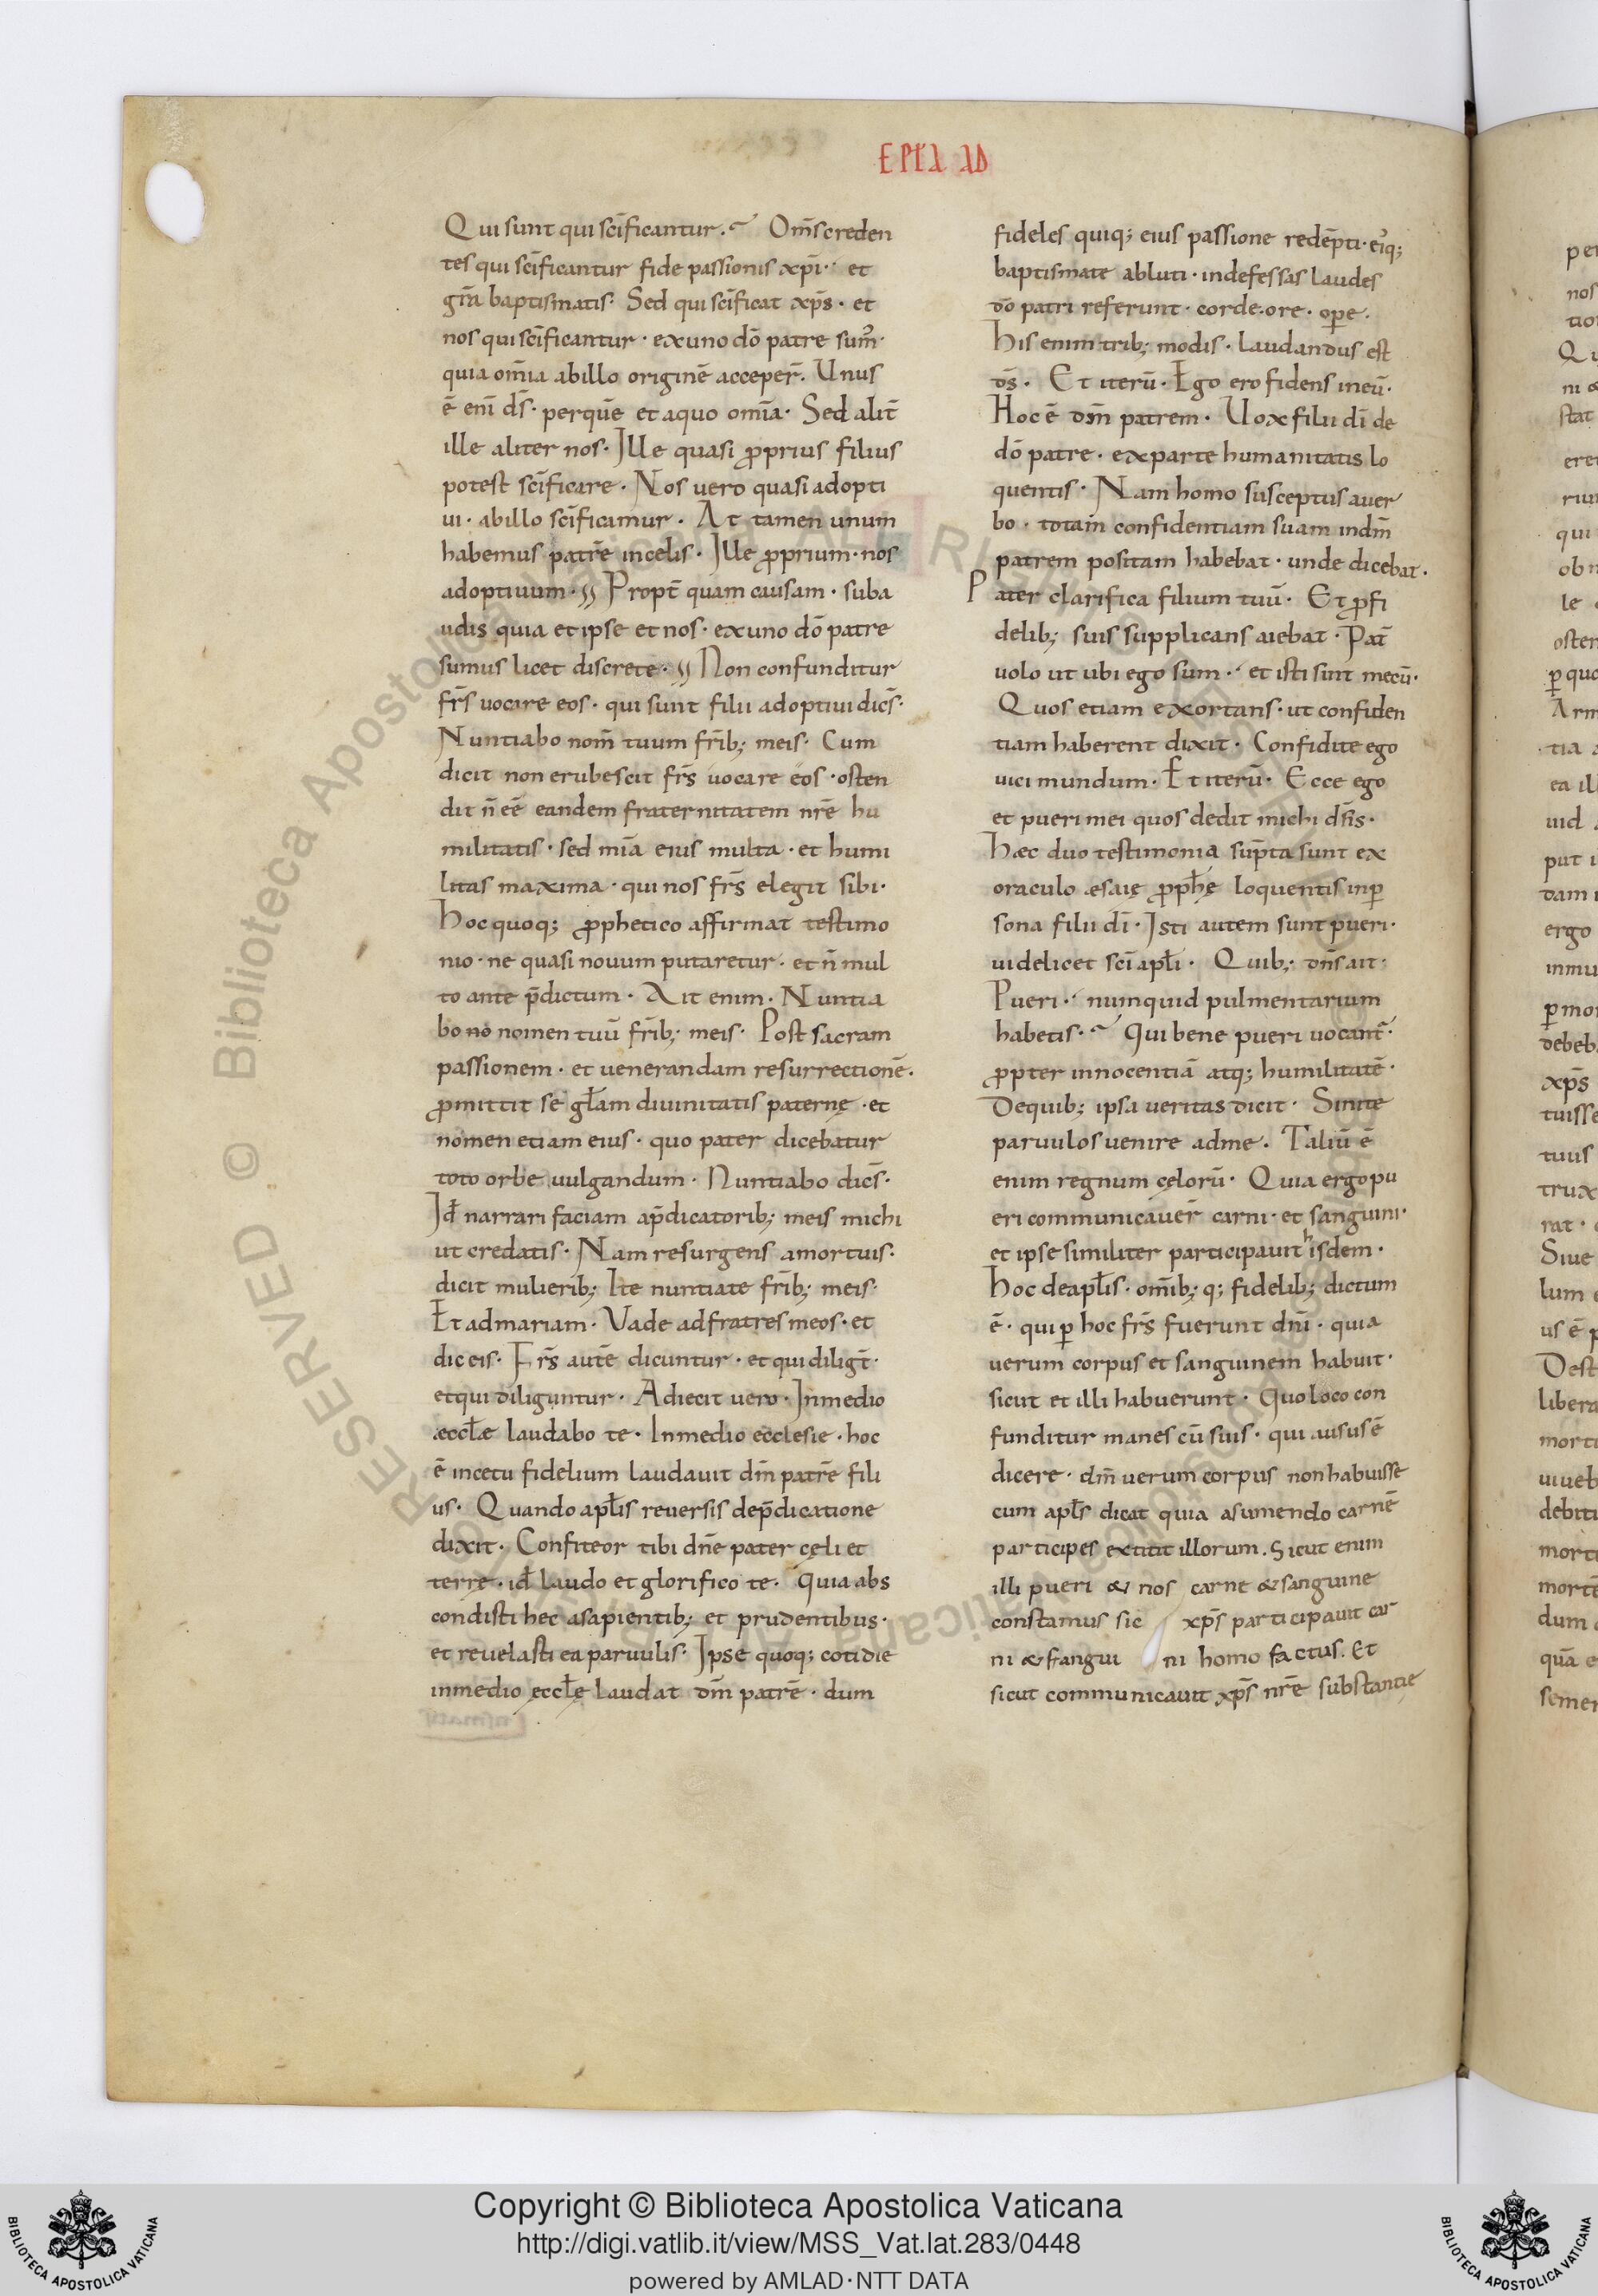 EPƚA AD
Qui sunt qui sc̄ificantur. Om̄s creden
tes qui sc̄ificantur fide passionis xp̄i. et
gr̄a baptismatis. Sed qui sc̄ificat xp̄s. et
nos qui sc̄ificantur. ex uno dō patre sum᷒.
quia om̄ia ab illo originē acceper̄. Unus
ē eni ds̄. per quē et a quo om̄ia. Sed alit̄
ille aliter nos. Ille quasi ꝓprius filius
potest sc̄ificare. Nos uero quasi adopti
ui. ab illo sc̄ificamur. At tamen unum
habemus patrē in celis. Ille ꝓprium. nos
adoptiuum. Propt̄ quam causam. suba
udis quia et ipse et nos. ex uno dō patre
sumus licet discrete. Non confunditur
frs̄ uocare eos. qui sunt filii adoptiui dics̄.
Nuntiabo nom̄ tuum frib̄; meis. Cum
dicit non erubescit frs̄ uocare eos. osten
dit n̄ eē eandem fraternitatem nrē hu
militatis. sed mīa eius multa. et humi
litas maxima. qui nos frs̄ elegit sibi.
Hoc quoq; ꝓphetico affirmat testimo
nio. ne quasi nouum putaretur. et n̄ mul
to ante p̄dictum. Ait enim. Nuntia
bo no nomen tuū frib̄; meis. Post sacram
passionem. et uenerandam resurrectionē.
ꝓmittit se gƚam diuinitatis paternę. et
nomen etiam eius. quo pater dicebatur
toto orbe uulgandum. Nuntiabo dics̄.
Iđ narrari faciam a p̄dicatorib; meis michi
ut credatis. Nam resurgens a mortuis.
dicit mulierib; Ite nuntiate frib̄; meis.
Et ad mariam. Vade ad fratres meos. et
dic eis. Frs̄ autē dicuntur. et qui diligt̄.
et qui diliguntur. Adiecit uero. In medio
æccƚæ laudabo te. In medio ecclesie. hoc
ē in cetu fidelium laudauit dm̄ patrē fili
us. Quando apƚis reuersis de p̄dicatione
dixit. Confiteor tibi dn̄e pater cęli et
terrę. iđ laudo et glorifico te. Quia abs
condisti hec a sapientib; et prudentibus.
et reuelasti ea paruulis. Ipse quoq; cotidie
in medio ęccƚę laudat dm̄ patrē. dum
fideles quiq; eius passione redēpti. ei᷒q;
baptismate abluti. indefessas laudes
dō patri referunt. corde. ore. oꝑe.
His enim trib; modis. laudandus est
ds̄. Et iterū. Ego ero fidens in eū.
Hoc ē dm̄ patrem. Uox filii dī de
dō patre. ex parte humanitatis lo
quentis. Nam homo susceptus a uer
bo. totam confidentiam suam in dm̄
patrem positam habebat. unde dicebat.
Pater clarifica filium tuū. Et ꝓ fi
delib; suis supplicans aiebat. Pat̄
uolo ut ubi ego sum. et isti sint mecū.
Quos etiam exortans. ut confiden
tiam haberent dixit. Confidite ego
uici mundum. Et iterū. Ecce ego
et pueri mei quos dedit michi dn̄s.
Hæc duo testimonia sūpta sunt ex
oraculo æsaię ꝓphę loquentis in ꝑ
sona filii dī. Isti autem sunt pueri.
uidelicet sc̄i apƚi. Quib; dn̄s ait.
Pueri. numquid pulmentarium
habetis. Qui bene pueri uocant᷒.
ꝓpter innocentiā atq; humilitatē.
De quib; ipsa ueritas dicit. Sinite
paruulos uenire ad me. Taliū ē
enim regnum cęlorū. Quia ergo pu
eri communicauer̄ carni. et sanguini.
et ipse similiter participauit hisdem.
Hoc de apƚis. omīb; q; fidelib; dictum
ē. qui ꝑ hoc frs̄ fuerunt dn̄i. quia
uerum corpus et sanguinem habuit.
sicut et illi habuerunt. Quo loco con
funditur manes cū suis. qui ausus ē
dicere. dm̄ uerum corpus non habuisse
cum apƚs dicat quia asumendo carnē
participes extitit illorum. Sicut enim
illi pueri & nos carne & sanguine
constamus sic xp̄s participauit car
ni & sangui ni homo factus. Et
sicut communicauit xp̄s nrē substantię
Copyright © Biblioteca Apostolica Vaticana
http://digi.vatlib.it/view/MSS_Vat.lat.283/0448
powered by AMLAD·NTT DATA